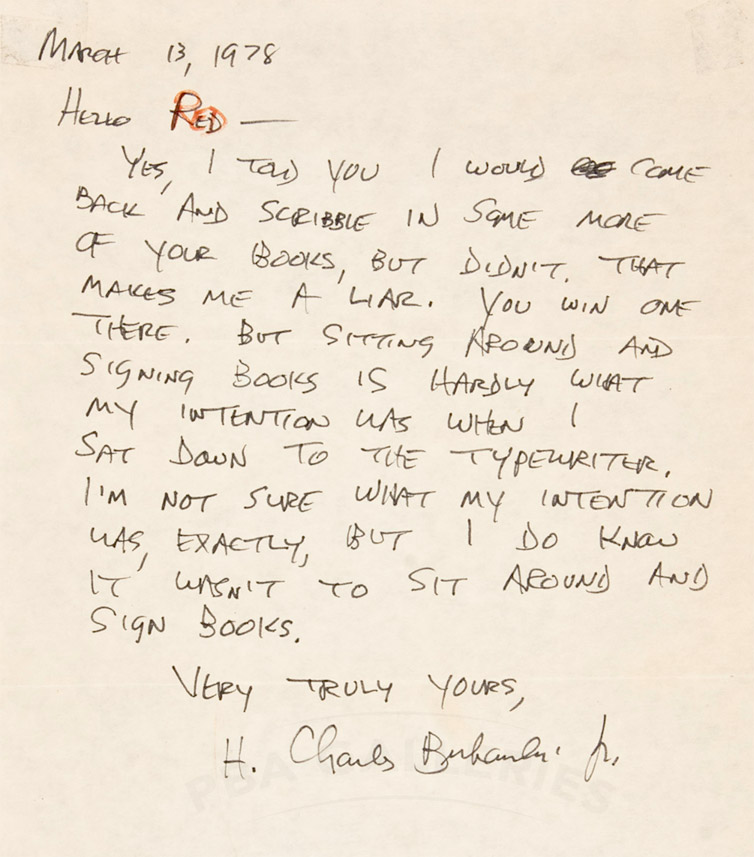 MARCH 13, 1978
HELLO RED —
YES, I TOLD YOU I WOULD COME
BACK AND SCRIBBLE IN SOME MORE
OF YOUR BOOKS, BUT DIDN'T. THAT
MAKES ME A LIAR. YOU WIN ONE
THERE. BUT SITTING AROUND AND
SIGNING BOOKS IS HARDLY WHAT
MY INTENTION WAS WHEN I
SAT DOWN TO THE TYPEWRITER.
I'M NOT SURE WHAT MY INTENTION
WAS, EXACTLY, BUT I DO KNOW
IT WASN'T TO SIT AROUND AND
SIGN BOOKS.
VERY TRULY YOURS,
H. Charles Jr.
PBA GALLERIES